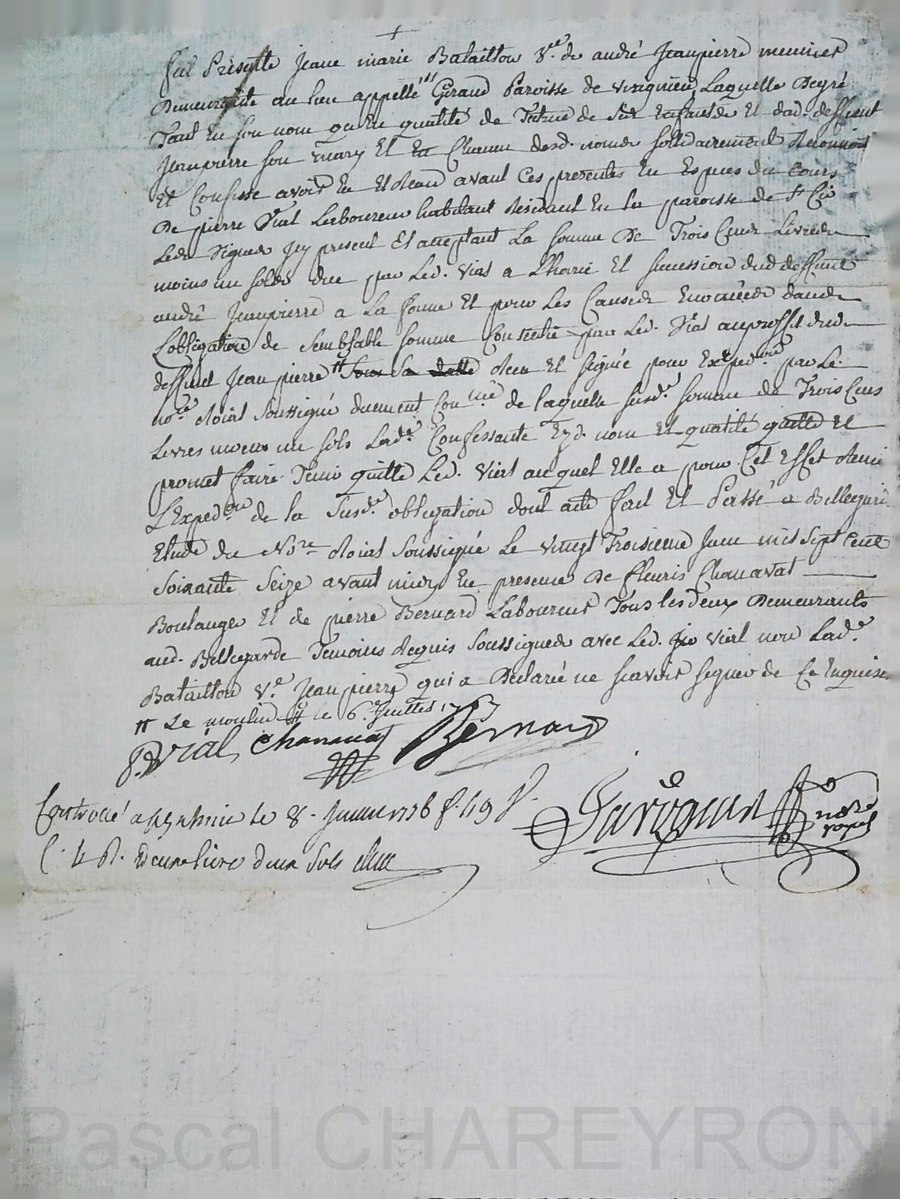 +
fut Présente Jeane marie Bataillon Ve. de andré Jeanpierre meunier
Demeurante au lieu appellé # Giraud Paroisse de Viriginieu Laquelle De gré
Tant en son nom qu'en qualité de Tutrice de ses Enfants Et dud. deffunt
Jeanpierre son mary Et En Chacun desd. noms solidairement Reconnoit
Et Confesse avoir Eu Et Receu avant Ces presentes En Especes du Cours
De pierre Vial Laboureur habitant Résidant En la paroisse de St Cir
Les Vignes Icy present Et acceptant La somme De Trois Cens Livres
moins un sols due par Led. Vial a L'hoirie Et succession dud deffunt
andré Jeanpierre a La forme Et pour Les Causes Enoncées dans
L'obligation de semblable somme Contractée par Led. Vial au proffit dud.
deffunt Jeanpierre # sous sa datte Receu et signée pour Expedon par Le
nore. Roial soussigné duement Con.née de laquelle susd. somme de Trois Cens
Livres moins un sols Lade. Confessante Ezd. nom Et qualité quitte Et
promet faire Tenir quitte Led. Vial auquel Elle a pour Cet Effet Remis
L'Expedon de la Susd. obligation dont acte fait Et Passé a Bellegarde
Etude du Nore Roial soussigné Le vingt Troisieme Juin mil sept Cent
Soixante Seize avant midy En presence De fleuris Chanavat
Boulanger Et de pierre Bernard Laboureur Tous les deux Demeurants
aud. Bellegarde Temoins Requis soussignés avec Led. Vial non Lade.
Bataillon Ve. Jeanpierre qui a Déclaré ne scavoir signer de Ce Enquise
# Le moulin # le 6e. Juillet 17
P. Vial Chanavat Bernard
Controllé a le 8. Juillet 1776 fo. 49 Vo.
C. 4 R. une livre deux sols
nore
royal
Pascal CHAREYRON